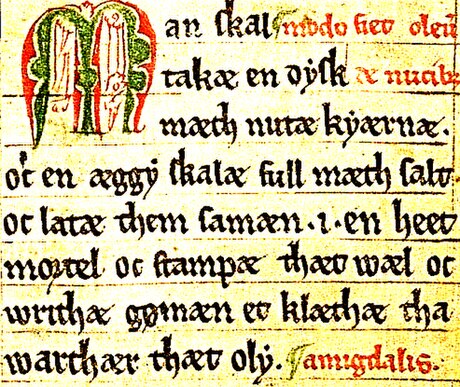 Man skal ¶modo fiet oleū
takæ en dysk de nucib;
mæth nutæ kyærnæ.
oc en æggy skalæ full mæth salt
oc latæ them samæn .i. en heet
mortel oc stampæ thæt wæl oc
writhæ gømæn et klæthæ tha
warthær thæt oly. ¶amigdalis.